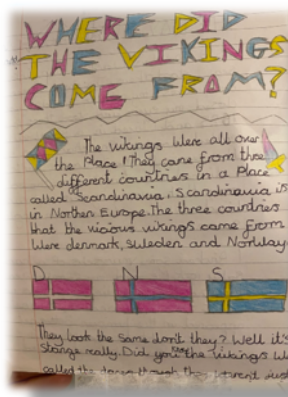 WHERE DID
THE VIKINGS
COME FROM?
The vikings were all over
the place! They came from three
different countries in a place
called Scandinavia. Scandinavia is
in Northen Europe. The three countries
that the vicious vikings came from
were denmark, sweden and Norway.
D N S
They look the same don't they? Well it's
strange really. Did you the vikings
called the